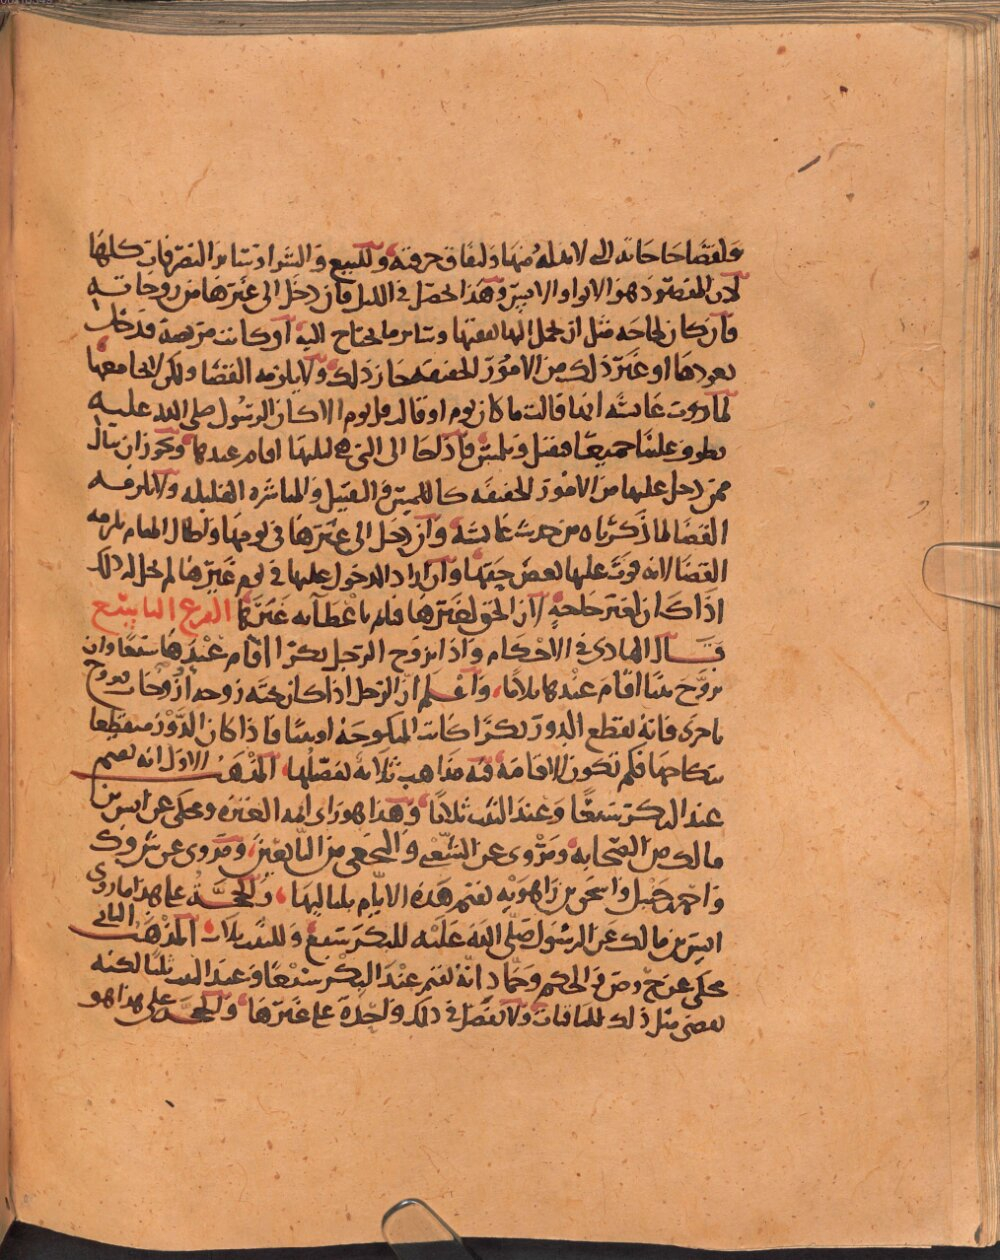 ولقضا حاجاته التي لابد له منها ولنفاق حرفته وللبيع والشرا وسائر التصرفات كلها
لان المقصود هو الايوا والانس وهذا حصل في الليل فان دخل الى غيرها من زوجاته
فان كان لحاجه مثل ان يحمل اليها نفقتها وسائر ما يحتاج اليه او كانت مريضة فدخل
يعودها او غير ذلك من الامور الخفيفه جاز ذلك ولا يلزمه القضا ولكن لا يجامعها
لما روت عائشه انها قالت ما كان يوم او قال قل يوم الا كان الرسول صلى الله عليه
يطوف علينا جميعا فيقبل ويلمس فاذا جا الى التي هي ليلتها اقام عندها ويجوز ان ينال
ممن دخل عليها من الامور الخفيفه كاللمس والتقبيل والمباشره القليله ولا يلزمه
القضا لما ذكرناه من حديث عائشه وان دخل الى غيرها في يومها واطال المقام يلزمه
القضا لانه فوت عليها بعض حقها وان اراد الدخول عليها في يوم غيرها لم يحل له ذلك
اذا كان لغير حاجه لان الحق لغيرها فلم باعطآيه غيرها الفرع السابع
قال الهادي في الاحكام واذا تزوج الرجل بكرا اقام عندها سبعا وان
تزوج ثيبا اقام عندها ثلاثا، واعلم ان الرجل اذا كان تحته زوجه او زوجات فتزوج
باخرى فانه يقطع الدور بكرا كانت المنكوحه او ثيبا فاذا كان الدور منقطعا
بنكاحها فكم تكون الاقامة فيه مذاهب ثلاثه نفصلها، المذهب الاول انه يقيم
عند البكر سبعا وعند الثيب ثلاثا وهذا هو راي ائمه العتره ومحكي عن انس بن
مالك من الصحابه ومروي عن الشعبي والنخعي من التابعين، ومروي عن
واحمد بن حنبل واسحق بن راهويه يقيم هذه الايام بلياليها، والحجة على هذا ما روى
انس بن مالك عن الرسول صلى الله عليه للبكر سبع وللثيب ثلاث المذهب الثاني
محكي عن ح وص والحكم وحماد انه يقيم عند البكر سبعا وعند الثيب ثلثا لكنه
يقضي مثل ذلك للباقيات ولا تفضل في ذلك واحدة على غيرها والحجة على هذا هو